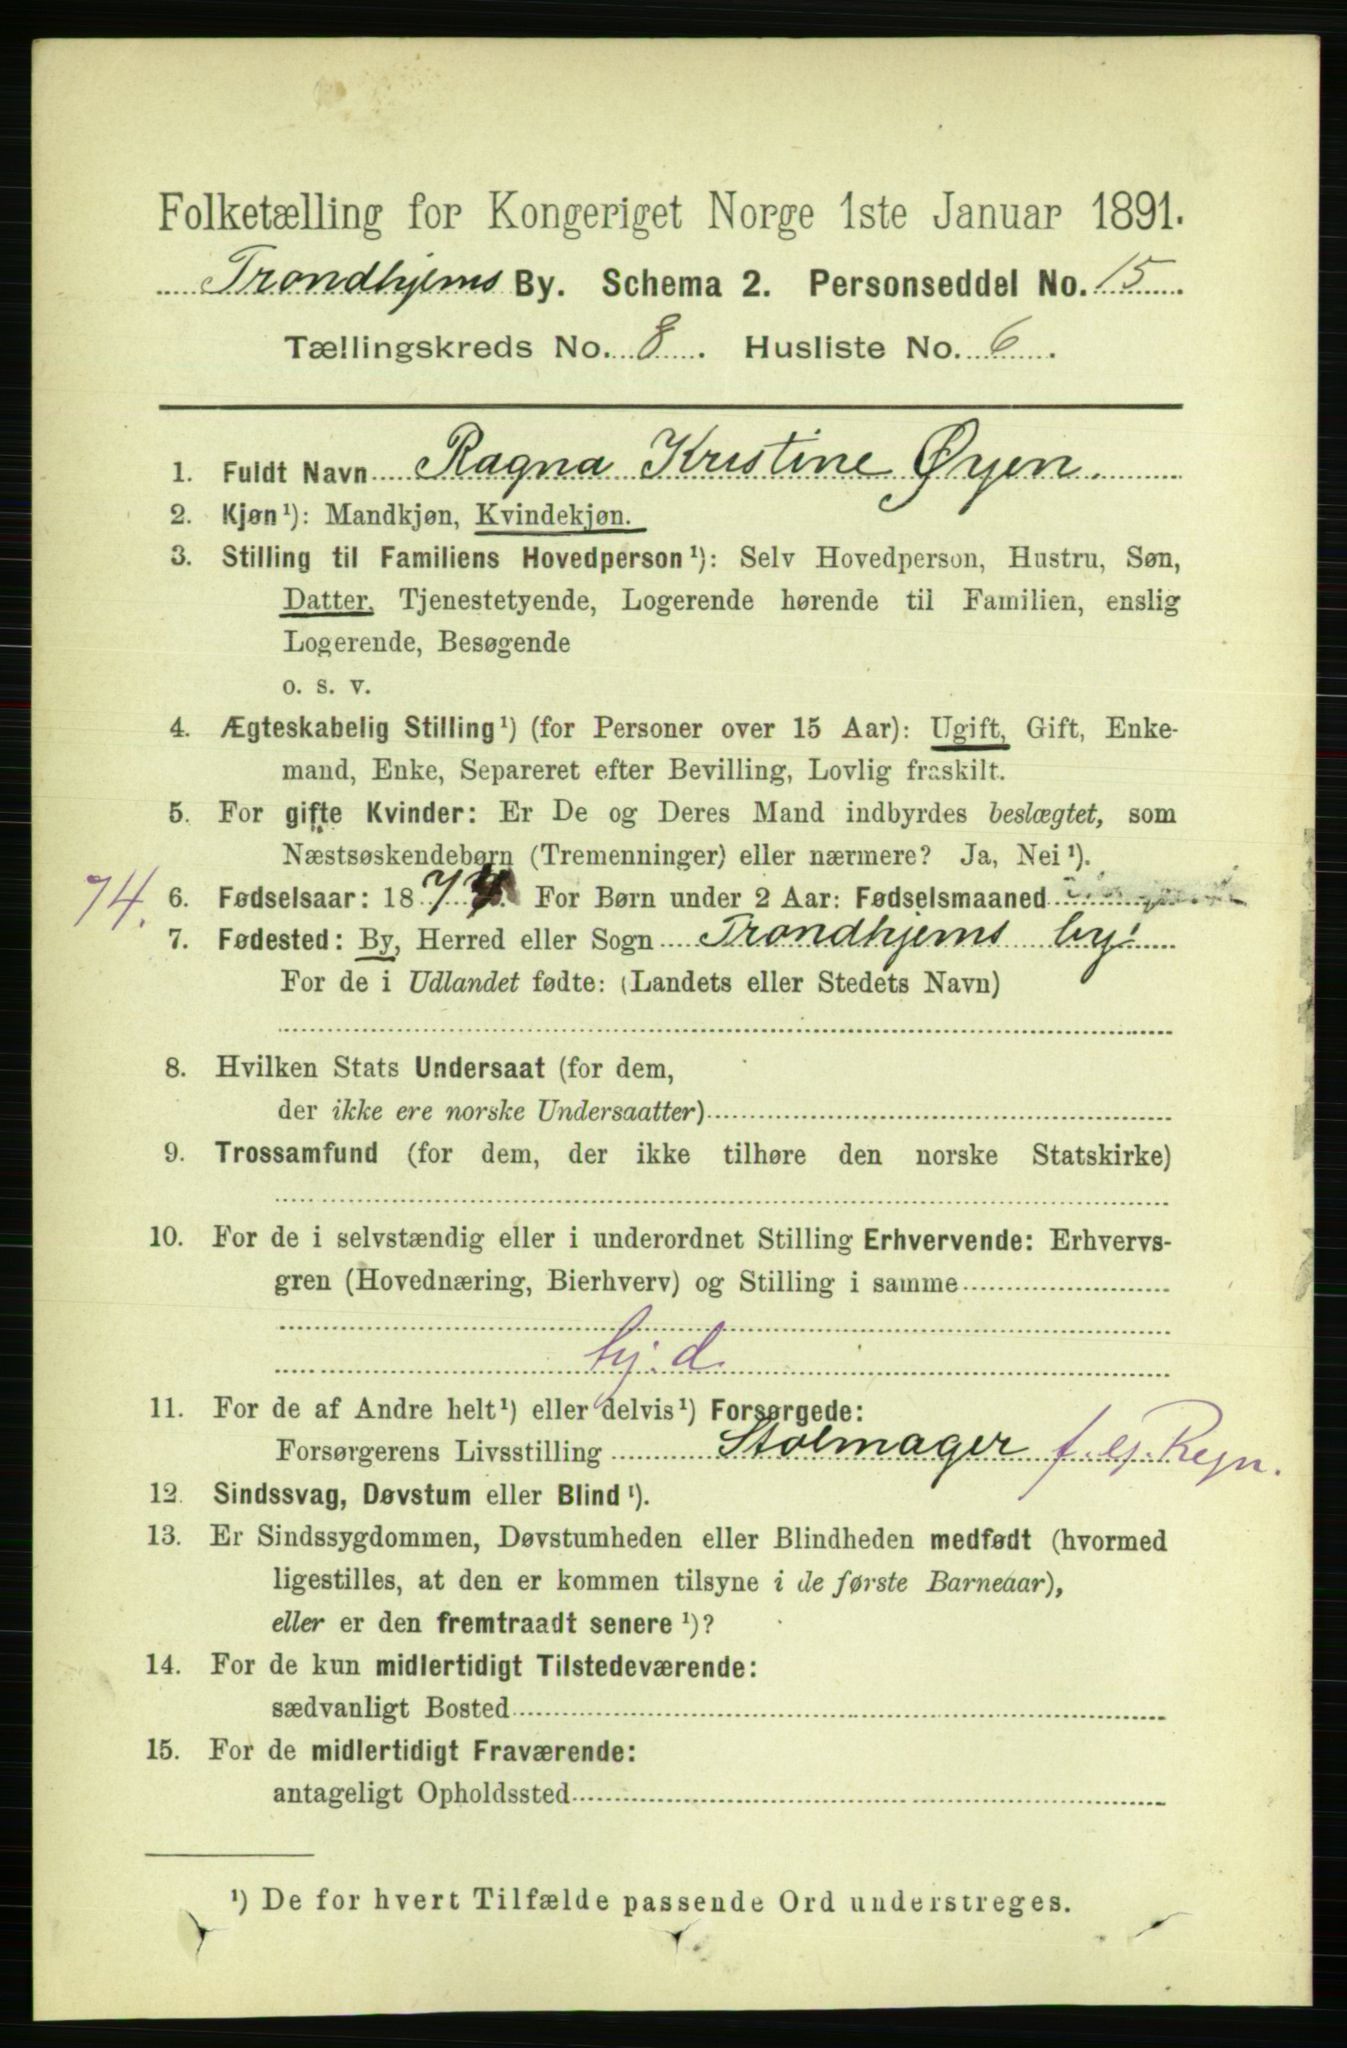 Folketælling for Kongeriget Norge 1ste Januar 1891.
Trondhjems By. Schema 2. Personseddel No. 15
Tællingskreds No. 8. Husliste No. 6.
1. Fuldt Navn Ragna Kristine Øyen.
2. Kjøn¹): Mandkjøn, Kvindekjøn.
3. Stilling til Familiens Hovedperson¹): Selv Hovedperson, Hustru, Søn,
Datter, Tjenestetyende, Logerende hørende til Familien, enslig
Logerende, Besøgende
o. s. v.
4. Ægteskabelig Stilling¹) (for Personer over 15 Aar): Ugift, Gift, Enke-
mand, Enke, Separeret efter Bevilling, Lovlig fraskilt.
5. For gifte Kvinder: Er De og Deres Mand indbyrdes beslægtet, som
Næstsøskendebørn (Tremenninger) eller nærmere? Ja, Nei¹).
74. 6. Fødselsaar: 1874. For Børn under 2 Aar: Fødselsmaaned
7. Fødested: By, Herred eller Sogn Trondhjems by!
For de i Udlandet fødte: (Landets eller Stedets Navn)
8. Hvilken Stats Undersaat (for dem,
der ikke ere norske Undersaatter)
9. Trossamfund (for dem, der ikke tilhøre den norske Statskirke)
10. For de i selvstændig eller i underordnet Stilling Erhvervende: Erhvervs-
gren (Hovednæring, Bierhverv) og Stilling i samme
hj. d.
11. For de af Andre helt¹) eller delvis¹) Forsørgede:
Forsørgerens Livsstilling Stolmager f. eg. Regn.
12. Sindssvag, Døvstum eller Blind¹).
13. Er Sindssygdommen, Døvstumheden eller Blindheden medfødt (hvormed
ligestilles, at den er kommen tilsyne i de første Barneaar),
eller er den fremtraadt senere¹)?
14. For de kun midlertidigt Tilstedeværende:
sædvanligt Bosted
15. For de midlertidigt Fraværende:
antageligt Opholdssted
¹) De for hvert Tilfælde passende Ord understreges.